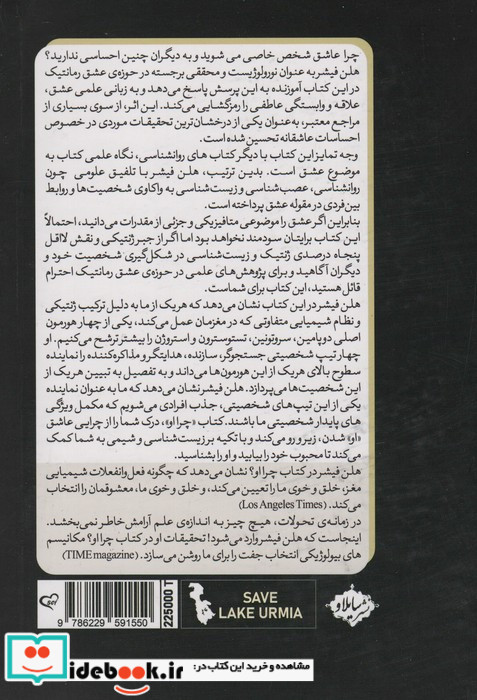 چرا عاشق شخص خاصی می شوید و به دیگران چنین احساسی ندارید؟
هلن فیشر به عنوان نورولوژیست و محققی برجسته در حوزه‌ی عشق رمانتیک
در این کتاب آموزنده به این پرسش پاسخ می‌دهد و به زبانی علمی عشق،
علاقه و وابستگی عاطفی را رمزگشایی می‌کند. این اثر، از سوی بسیاری از
مراجع معتبر، به‌عنوان یکی از درخشان‌ترین تحقیقات موردی در خصوص
احساسات عاشقانه تحسین شده است.
وجه تمایز این کتاب با دیگر کتاب های روانشناسی، نگاه علمی کتاب به
موضوع عشق است. بدین ترتیب، هلن فیشر با تلفیق علومی چون
روانشناسی، عصب‌شناسی و زیست‌شناسی به واکاوی شخصیت‌ها و روابط
بین‌فردی در مقوله عشق پرداخته است.
بنابراین اگر عشق را موضوعی متافیزیکی و جزئی از مقدرات می‌دانید، احتمالاً
این کتاب برایتان سودمند نخواهد بود اما اگر از جبر ژنتیکی و نقش لااقل
پنجاه درصدی ژنتیک و زیست‌شناسی در شکل‌گیری شخصیت خود و
دیگران آگاهید و برای پژوهش‌های علمی در حوزه‌ی عشق رمانتیک احترام
قائل هستید، این کتاب برای شماست.
هلن فیشر در این کتاب نشان می‌دهد که هریک از ما به دلیل ترکیب ژنتیکی
و نظام شیمیایی متفاوتی که در مغزمان عمل می‌کند، یکی از چهار هورمون
اصلی دوپامین، سروتونین، تستوسترون و استروژن را بیشتر ترشح می‌کنیم. او
چهار تیپ شخصیتی جستجوگر، سازنده، هدایتگر و مذاکره‌کننده را نماینده
سطوح بالای هریک از این هورمون‌ها می‌داند و به تفصیل به تبیین هریک از
این شخصیت‌ها می‌پردازد. هلن فیشر نشان می‌دهد که ما به عنوان نماینده
یکی از این تیپ‌های شخصیتی، جذب افرادی می‌شویم که مکمل ویژگی
های پایدار شخصیتی ما باشند. کتاب «چرا او»، درک شما را از چرایی عاشق
«او» شدن، زیر و رو می‌کند و با تکیه بر زیست‌شناسی و شیمی به شما کمک
می‌کند تا محبوب خود را بیابید و او را بشناسید.
هلن فیشر در کتاب چرا او؟ نشان می‌دهد که چگونه فعل و انفعلات شیمیایی
مغز، خلق و خوی ما را تعیین می‌کند، و خلق و خوی ما، معشوقمان را انتخاب
می‌کند. (Los Angeles Times)
در زمانه‌ی تحولات، هیچ چیز به اندازه‌ی علم آرامش خاطر نمی‌بخشد.
اینجاست که هلن فیشر وارد می‌شود! تحقیقات او در کتاب چرا او؟ مکانیسم
های بیولوژیکی انتخاب جفت را برای ما روشن می‌سازد. (TIME magazine)
9 786229 591550
225000 T
SAVE
LAKE URMIA
نشر سایلاو
idebook.ir
مشاهده و خرید این کتاب در: